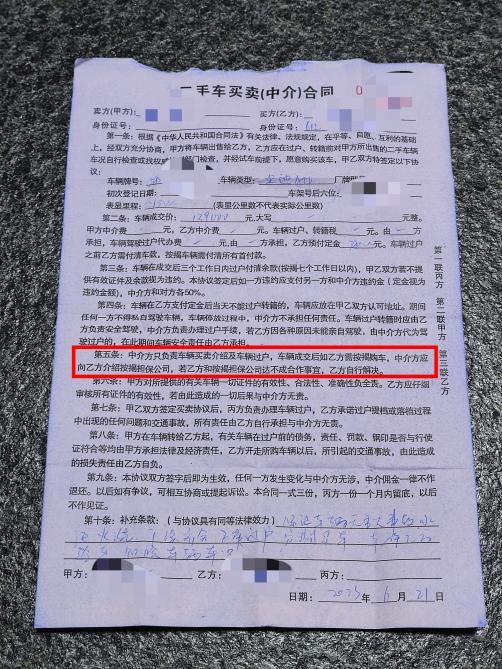 二手车买卖(中介)合同
卖方(甲方):
买方(乙方):
身份证号:
身份证号:
第一条:根据《中华人民共和国合同法》有关法律、法规规定,在平等、自愿、互利的基础
上,经双方充分协商,甲方将车辆出售给乙方,乙方应在过户、转籍前对甲方所出售的二手车辆
车况自行检查或找权威部门检查,并经试车前提下,愿意购买该车,甲乙双方特签定以下协
议:
车辆牌号: 车辆类型: 厂牌型
初次登记日期: 车架号后六位:
表显里程: (表显公里数不代表实际公里数)
第二条:车辆成交价: 129000 元,大写 元整。
甲方中介费 元,乙方中介费 元。车辆过户、转籍税 元,由 方
承担,车辆驾驶过户代办费 元,由 方承担。乙方预付定金 元。车辆过户
之前乙方需付清所有车款,按揭车辆需付清所有首付款。
第三条:车辆在成交后三个工作日内过户付清余款(按揭七个工作日以内),甲乙双方若不提
供有效证件及余款视为违约。本协议签定后如一方违约应支付另一方和中介方违约金(定金视为
违约金额),中介方和对方各50%。
第四条:车辆在乙方支付定金后当天不能过户转籍的,车辆应放在甲乙双方认可地址。期间
任何一方不得私自驾驶车辆,车辆停放过程中,中介方不承担任何责任。车辆过户转籍时应由乙
方负责安全驾驶,中介方负责办理过户手续,若乙方因各种原因未能亲自驾驶,由中介方代为驾
驶过户的,在此期间车辆安全由乙方负责。
第五条:中介方只负责车辆买卖介绍及车辆过户,车辆成交后如乙方需按揭购车,中介方应
向乙方介绍按揭担保公司,若乙方和按揭担保公司达不成合作事宜,乙方自行解决。
第六条:甲方对所提供的有关车辆一切证件的有效性、合法性、准确性负全责。乙方应仔细
审核所有证件的有效性,若由此造成的一切后果与中介方无责。
第七条:甲乙双方签定买卖协议后,丙方负责办理车辆过户,乙方承诺过户提档或落档过程
中出现的任何问题和交通事故,所有责任由乙方自行承担与中介方无责。
第八条:甲方在车辆转给乙方起,有关车辆在过户前的债务,责任、罚款、钢印是否与行使
证符合等均由甲方承担法律及经济责任,乙方开走所购车辆以后,所引起的交通事故,由此造成
的损失责任由乙方自负。
第九条:本协议双方签字后即为生效,任何一方发生变化与中介方无涉,中介佣金一律不作
退还。以后如有争议,可相互协商或提起诉讼。本合同一式三份,丙方一份一个月内留底,以后
不作见证。
第十条:补充条款:(与协议具有同等法律效力)
甲方: 乙方: 丙方:
日期: 2023 年 6 月 21 日
第一联丙方
第二联甲方
第三联乙方